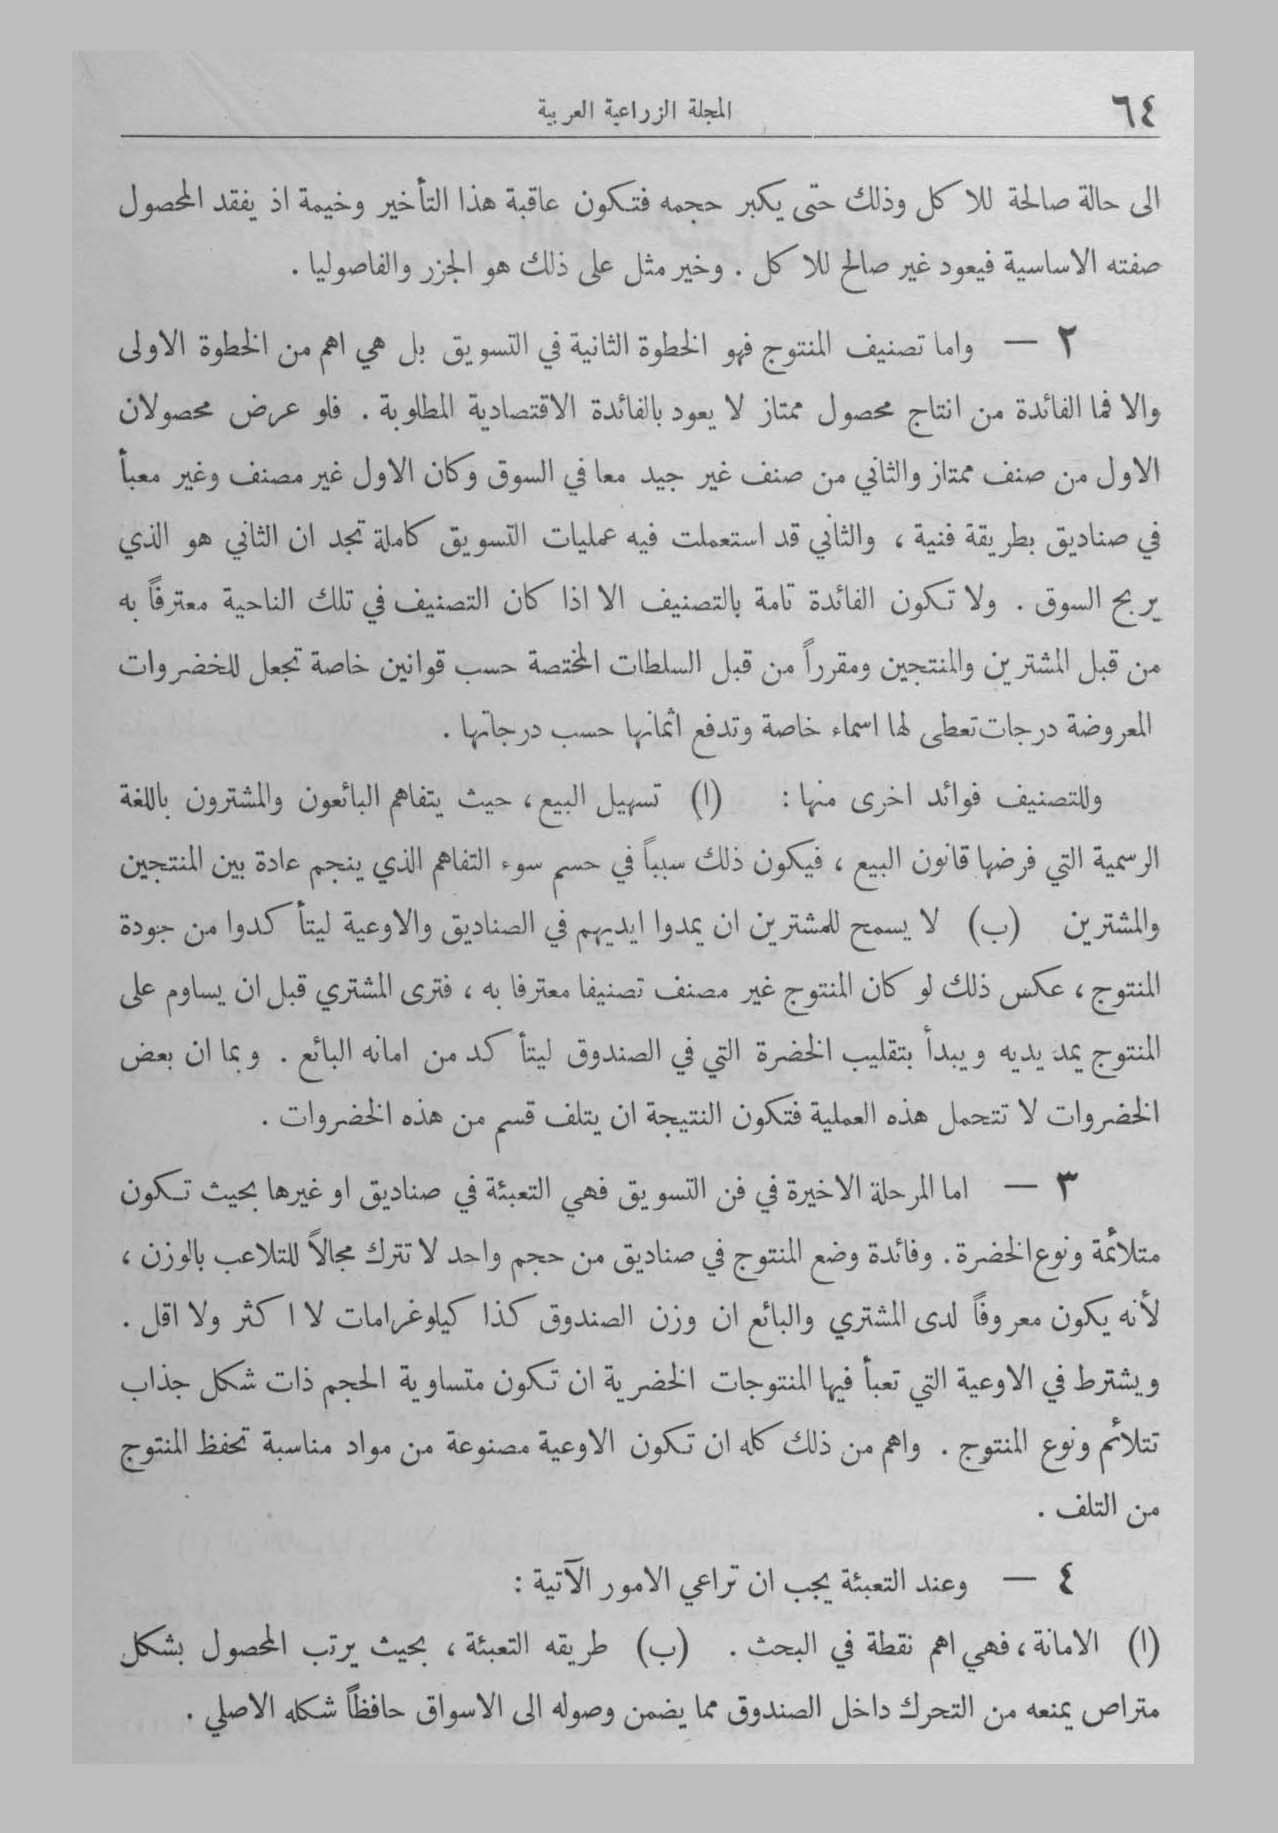 ٦٤
المجلة الزراعية العربية
الى حالة صالحة للاكل وذلك حتى يكبر حجمه فتكون عاقبة هذا التأخير وخيمة اذ يفقد المحصول
صفته الاساسية فيعود غير صالح للاكل . وخير مثل على ذلك هو الجزر والفاصوليا .
٢ — واما تصنيف المنتوج فهو الخطوة الثانية في التسويق بل هي اهم من الخطوة الاولى
والا فما الفائدة من انتاج محصول ممتاز لا يعود بالفائدة الاقتصادية المطلوبة . فلو عرض محصولان
الاول من صنف ممتاز والثاني من صنف غير جيد معا في السوق وكان الاول غير مصنف وغير معبأ
في صناديق بطريقة فنية ، والثاني قد استعملت فيه عمليات التسويق كاملة تجد ان الثاني هو الذي
يربح السوق . ولا تكون الفائدة تامة بالتصنيف الا اذا كان التصنيف في تلك الناحية معترفاً به
من قبل المشترين والمنتجين ومقرراً من قبل السلطات المختصة حسب قوانين خاصة تجعل للخضروات
المعروضة درجات تعطى لها اسماء خاصة وتدفع اثمانها حسب درجاتها .
وللتصنيف فوائد اخرى منها : (ا) تسهيل البيع ، حيث يتفاهم البائعون والمشترون باللغة
الرسمية التي فرضها قانون البيع ، فيكون ذلك سبباً في حسم سوء التفاهم الذي ينجم عادة بين المنتجين
والمشترين (ب) لا يسمح للمشترين ان يمدوا ايديهم في الصناديق والاوعية ليتأكدوا من جودة
المنتوج ، عكس ذلك لو كان المنتوج غير مصنف تصنيفا معترفا به ، فترى المشتري قبل ان يساوم على
المنتوج يمد يديه ويبدأ بتقليب الخضرة التي في الصندوق ليتأكد من امانه البائع . وبما ان بعض
الخضروات لا تتحمل هذه العملية فتكون النتيجة ان يتلف قسم من هذه الخضروات .
٣ — اما المرحلة الاخيرة في فن التسويق فهي التعبئة في صناديق او غيرها بحيث تكون
متلائمة ونوع الخضرة . وفائدة وضع المنتوج في صناديق من حجم واحد لا تترك مجالاً للتلاعب بالوزن ،
لأنه يكون معروفاً لدى المشتري والبائع ان وزن الصندوق كذا كيلوغرامات لا اكثر ولا اقل .
ويشترط في الاوعية التي تعبأ فيها المنتوجات الخضرية ان تكون متساوية الحجم ذات شكل جذاب
تتلائم ونوع المنتوج . واهم من ذلك كله ان تكون الاوعية مصنوعة من مواد مناسبة تحفظ المنتوج
من التلف .
٤ — وعند التعبئة يجب ان تراعي الامور الآتية :
(ا) الامانة ، فهي اهم نقطة في البحث . (ب) طريقه التعبئة ، بحيث يرتب المحصول بشكل
متراص يمنعه من التحرك داخل الصندوق مما يضمن وصوله الى الاسواق حافظاً شكله الاصلي .